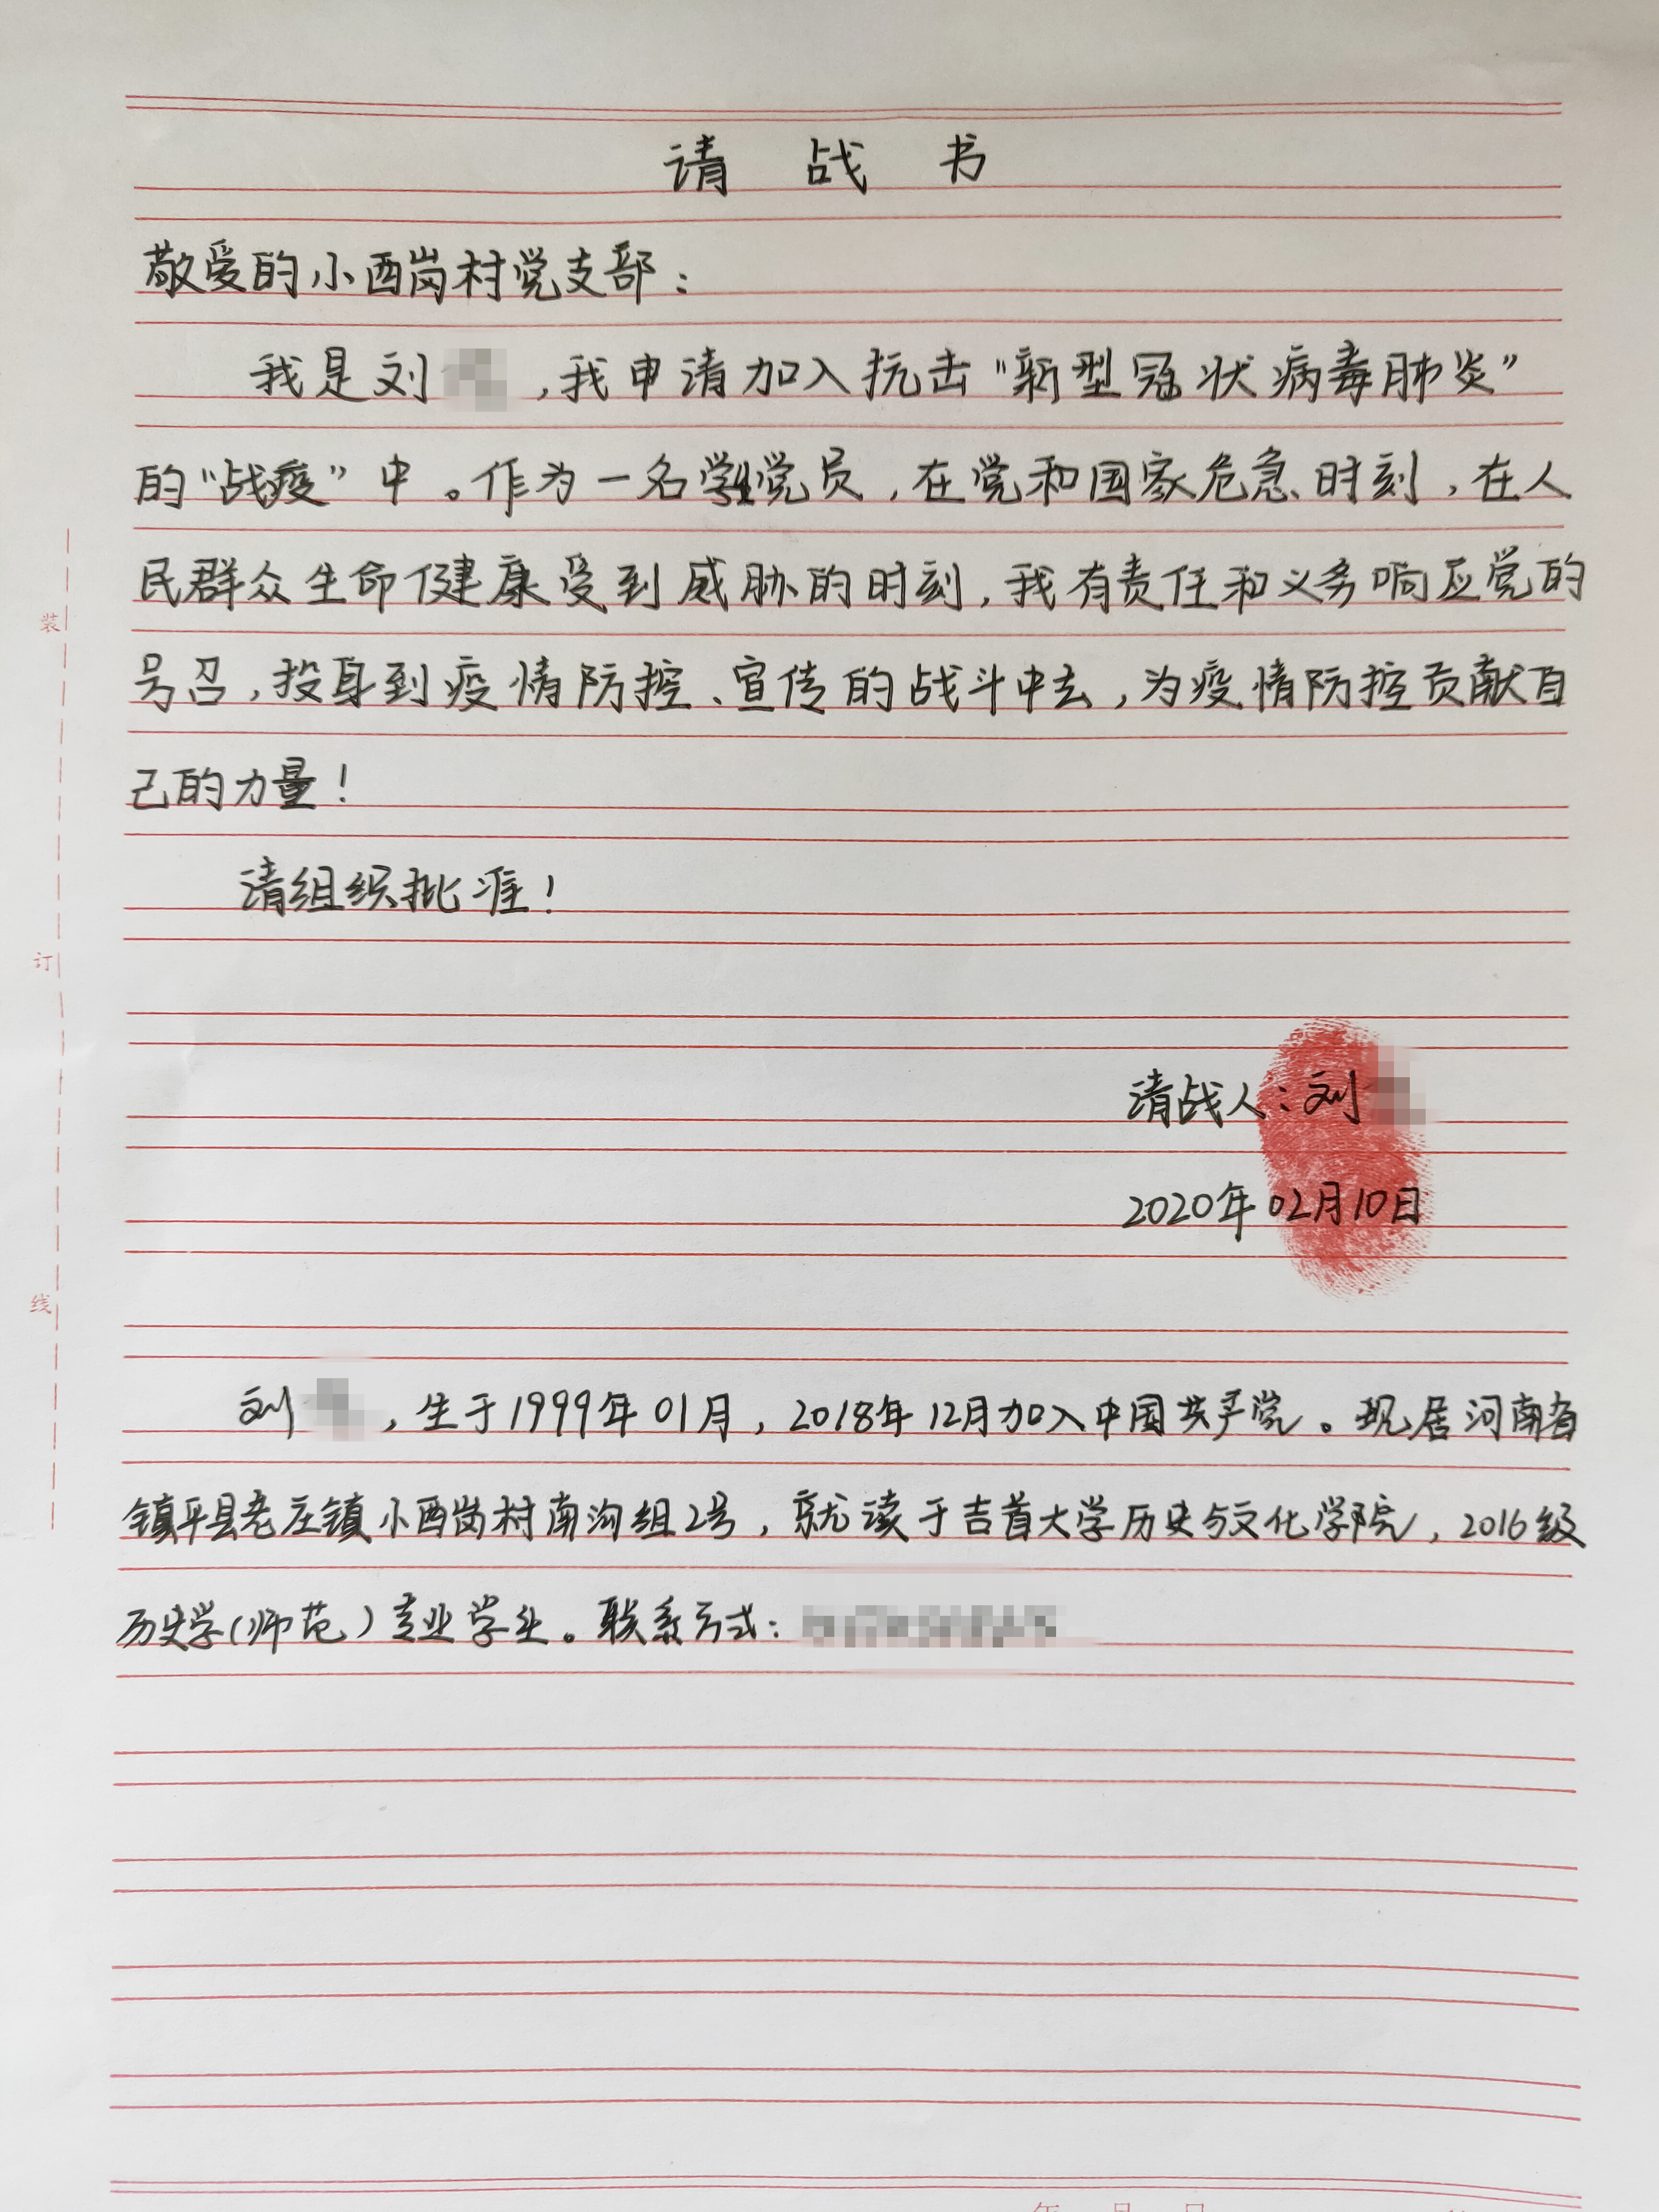 请战书
敬爱的小西岗村党支部：
我是刘，我申请加入抗击“新型冠状病毒肺炎”
的“战疫”中。作为一名学生党员，在党和国家危急时刻，在人
民群众生命健康受到威胁的时刻，我有责任和义务响应党的
号召，投身到疫情防控、宣传的战斗中去，为疫情防控贡献自
己的力量！
请组织批准！
请战人：刘
2020年02月10日
刘，生于1999年01月，2018年12月加入中国共产党。现居河南省
镇平县老庄镇小西岗村南沟组2号，就读于吉首大学历史与文化学院，2016级
历史学（师范）专业学生。联系方式：
装
订
线
年 月 日